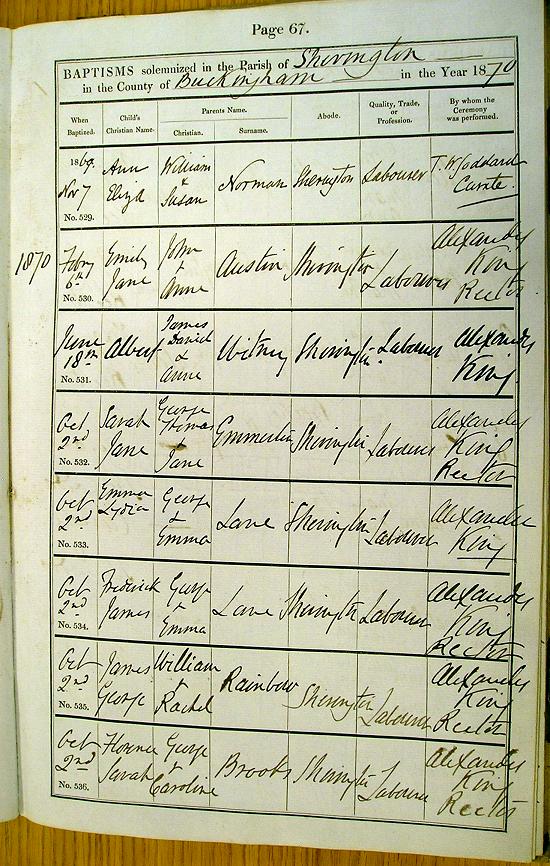 Page 67.
BAPTISMS solemnized in the Parish of Sherington
in the County of Buckingham in the Year 1870
When Baptized. Child's Christian Name. Parents Name. Abode. Quality, Trade, or Profession. By whom the Ceremony was performed.
Christian. Surname.
1869. Ann William T. W. Goddard
Novr 7 Eliza & Susan Norman Sherington Labourer Curate.
No. 529.
1870
Feby Emily John Alexander
6th Jane & Anne Austin Sherington Labourer King
No. 530. Rector
June James David Alexander
18th Albert & Anne Witney Sherington Labourer King
No. 531.
Oct Sarah George Thomas Alexander
2nd Jane & Jane Emmerton Sherington Labourer King
No. 532. Rector
Oct Emma George Alexander
2nd Lydia & Emma Lane Sherington Labourer King
No. 533.
Oct Frederick George Alexander
2nd James & Emma Lane Sherington Labourer King
No. 534. Rector
Oct James William Rainbow Alexander
2nd George & Rachel Sherington Labourer King
No. 535. Rector
Oct Florence George Alexander
2nd Sarah & Caroline Brooks Sherington Labourer King
No. 536. Rector